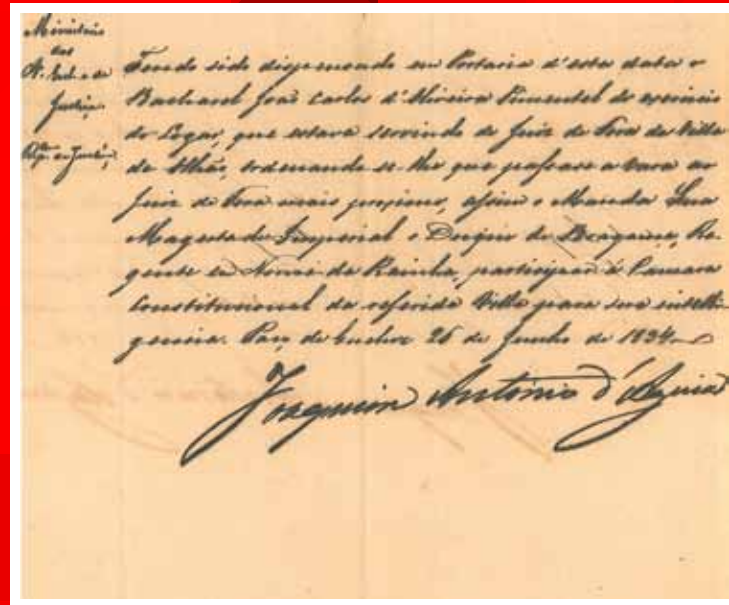 Ministerio
dos
N. Eccl. e de
Justiça
Tendo sido dispensado em Portaria d'esta data o
Bacharel João Carlos d'Oliveira Pimentel do exercicio
do Logar, que estava servindo de Juiz de Fora da Villa
de Olhão, ordenando-se-lhe que passasse a vara ao
Juiz de Fora mais proximo, assim o Manda Sua
Magestade Imperial o Duque de Bragança, Re-
gente em Nome da Rainha, participar á Camara
Constitucional da referida Villa para sua intelli-
gencia. Paço de Queluz 26 de Junho de 1834
Joaquim António d'Aguiar